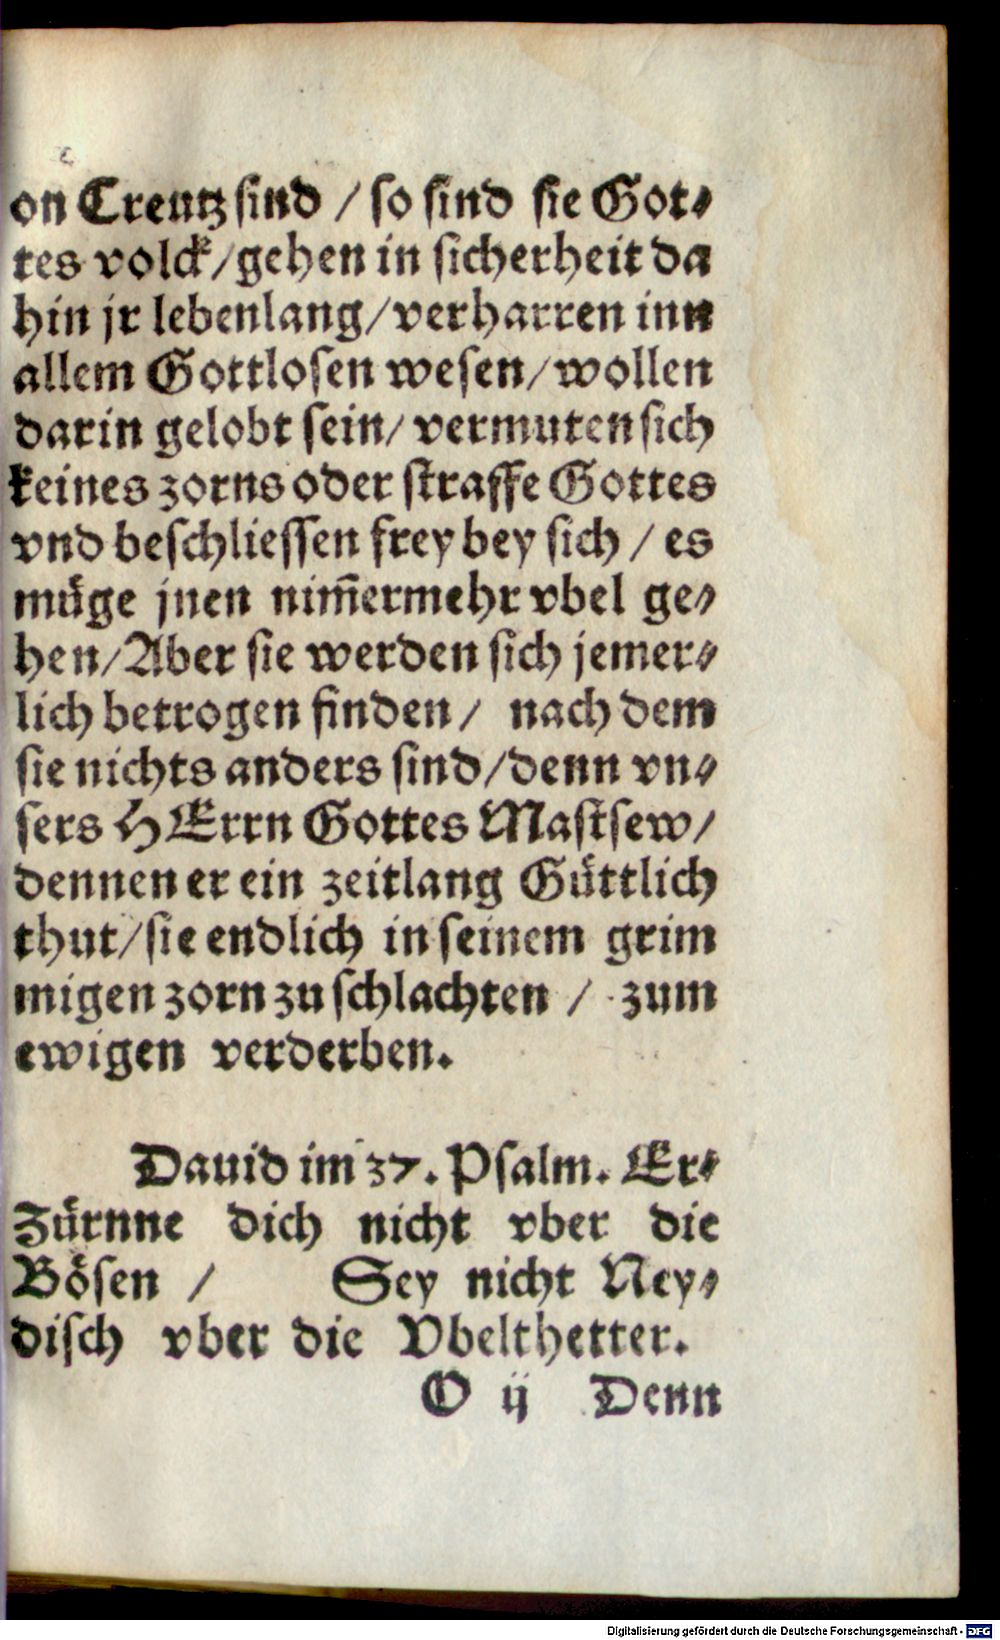 on Creutz sind / so sind sie Got⸗
tes volck / gehen in sicherheit da
hin jr lebenlang / verharren inn
allem Gottlosen wesen / wollen
darin gelobt sein / vermuten sich
keines zorns oder straffe Gottes
vnd beschliessen frey bey sich / es
müge jnen nim̃ermehr vbel ge⸗
hen / Aber sie werden sich jemer⸗
lich betrogen finden / nach dem
sie nichts anders sind / denn vn⸗
sers HErrn Gottes Mastsew /
dennen er ein zeitlang Güttlich
thut / sie endlich in seinem grim
migen zorn zu schlachten / zum
ewigen verderben.
Dauid im 37. Psalm. Er⸗
Zürnne dich nicht vber die
Bösen / Sey nicht Ney⸗
disch vber die Vbelthetter.
O ij Denn
Digitalisierung gefördert durch die Deutsche Forschungsgemeinschaft - DFG